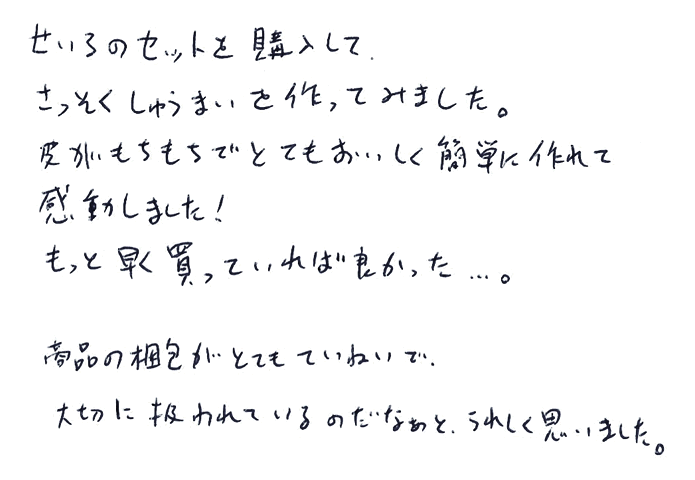 せいろのセットを購入して、
さっそくしゅうまいを作ってみました。
皮がもちもちでとてもおいしく簡単に作れて
感動しました!
もっと早く買っていれば良かった…。
商品の梱包がとてもていねいで、
大切に扱われているのだなぁと、うれしく思いました。